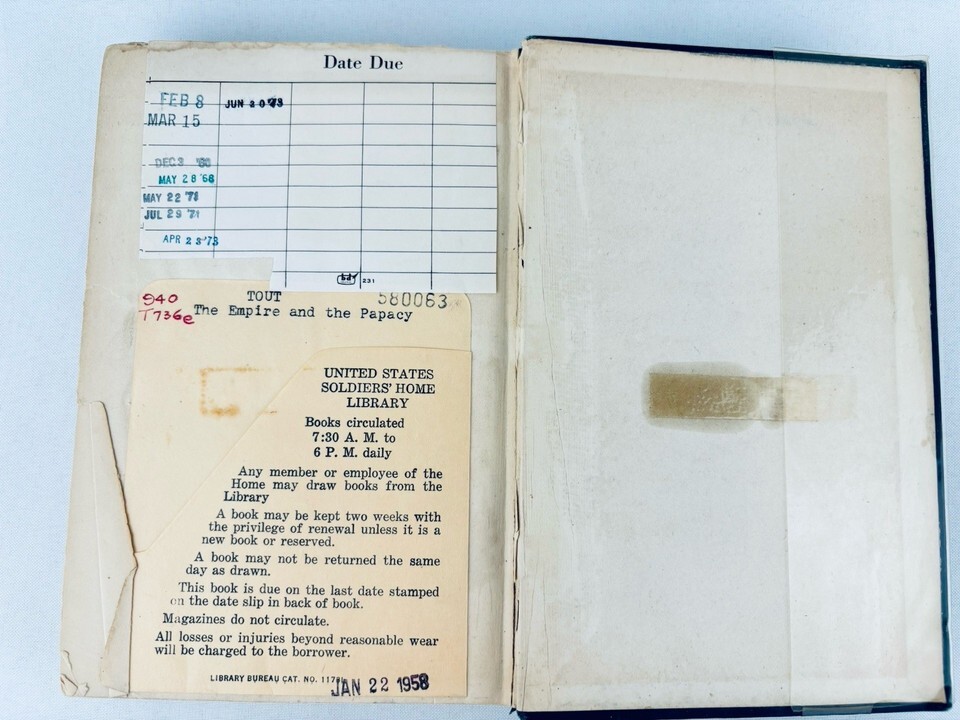 Date Due
FEB 8 JUN 20 '73
MAR 15
DEC 3
MAY 28 '68
MAY 22 '71
JUL 29 '71
APR 23 '73
bd 231
940 TOUT 580063
T736e The Empire and the Papacy
UNITED STATES
SOLDIERS' HOME
LIBRARY
Books circulated
7:30 A. M. to
6 P. M. daily
Any member or employee of the
Home may draw books from the
Library
A book may be kept two weeks with
the privilege of renewal unless it is a
new book or reserved.
A book may not be returned the same
day as drawn.
This book is due on the last date stamped
on the date slip in back of book.
Magazines do not circulate.
All losses or injuries beyond reasonable wear
will be charged to the borrower.
LIBRARY BUREAU CAT. NO.
JAN 22 1958